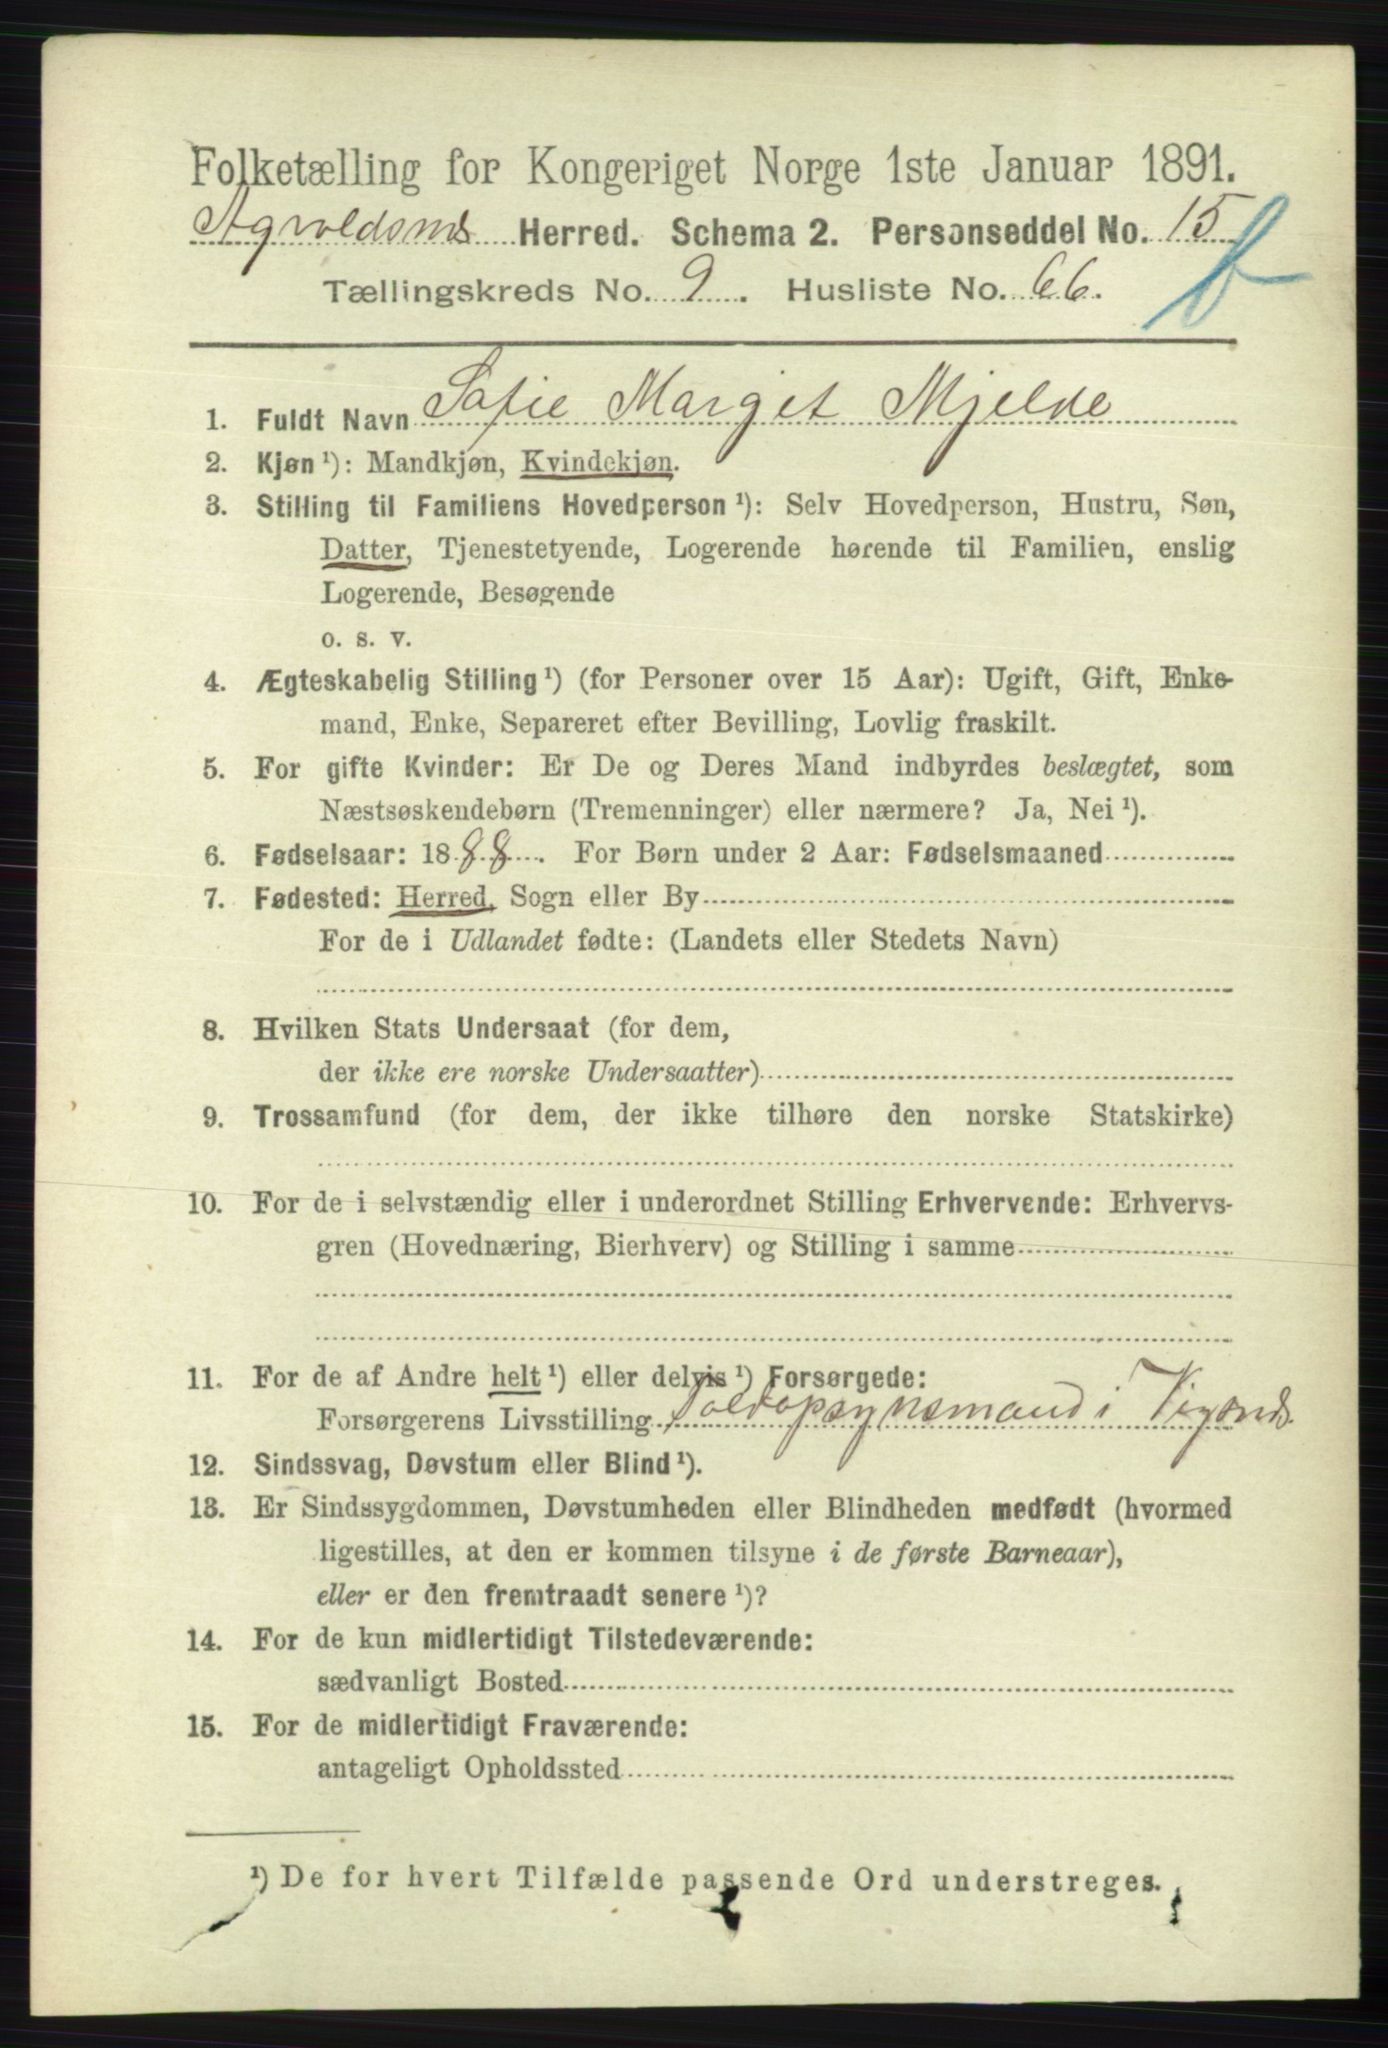 Folketælling for Kongeriget Norge 1ste Januar 1891.
Agvoldsnds Herred. Schema 2. Personseddel No. 15
Tællingskreds No. 9. Husliste No. 66.
1. Fuldt Navn Sofie Marget Mjelde
2. Kjøn ¹): Mandkjøn, Kvindekjøn.
3. Stilling til Familiens Hovedperson ¹): Selv Hovedperson, Hustru, Søn,
Datter, Tjenestetyende, Logerende hørende til Familien, enslig
Logerende, Besøgende
o. s. v.
4. Ægteskabelig Stilling ¹) (for Personer over 15 Aar): Ugift, Gift, Enke-
mand, Enke, Separeret efter Bevilling, Lovlig fraskilt.
5. For gifte Kvinder: Er De og Deres Mand indbyrdes beslægtet, som
Næstsøskendebørn (Tremenninger) eller nærmere? Ja, Nei ¹).
6. Fødselsaar: 1888. For Børn under 2 Aar: Fødselsmaaned
7. Fødested: Herred, Sogn eller By
For de i Udlandet fødte: (Landets eller Stedets Navn)
8. Hvilken Stats Undersaat (for dem,
der ikke ere norske Undersaatter)
9. Trossamfund (for dem, der ikke tilhøre den norske Statskirke)
10. For de i selvstændig eller i underordnet Stilling Erhvervende: Erhvervs-
gren (Hovednæring, Bierhverv) og Stilling i samme
11. For de af Andre helt ¹) eller delvis ¹) Forsørgede:
Forsørgerens Livsstilling Toldopsynsmand i
12. Sindssvag, Døvstum eller Blind ¹).
13. Er Sindssygdommen, Døvstumheden eller Blindheden medfødt (hvormed
ligestilles, at den er kommen tilsyne i de første Barneaar),
eller er den fremtraadt senere ¹)?
14. For de kun midlertidigt Tilstedeværende:
sædvanligt Bosted
15. For de midlertidigt Fraværende:
antageligt Opholdssted
¹) De for hvert Tilfælde passende Ord understreges.